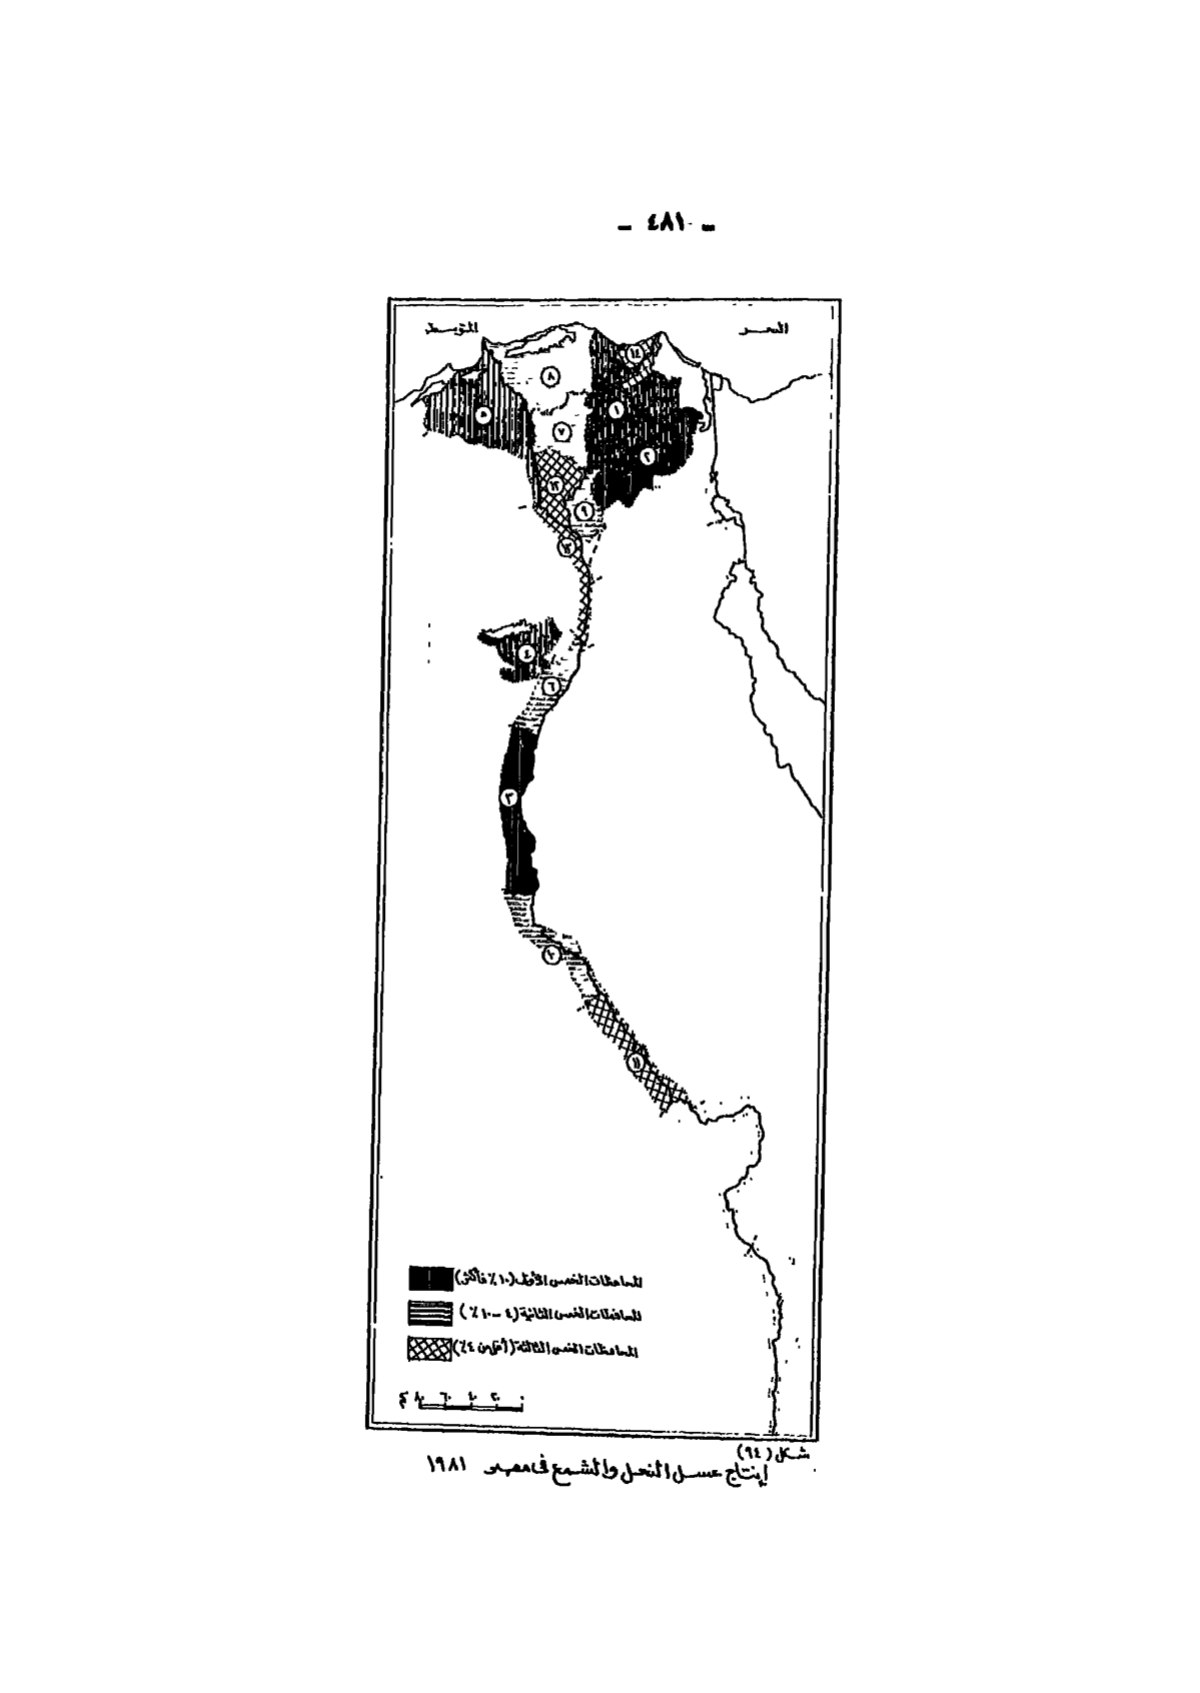 - ٤٨١ -
البحر المتوسط
١٤
٨
١
٥
٧
٢
١٢
٩
١٣
٤
٦
٣
١٠
١١
المحافظات الخمس الأولى (١٠٪ فأكثر)
المحافظات الخمس الثانية (٤ - ١٠٪)
المحافظات الخمس الثالثة (أقل من ٤٪)
٠ ٢٠ ٤٠ ٦٠ ٨٠ كم
شكل (٩٤)
إنتاج عسل النحل والشمع فى مصر ١٩٨١